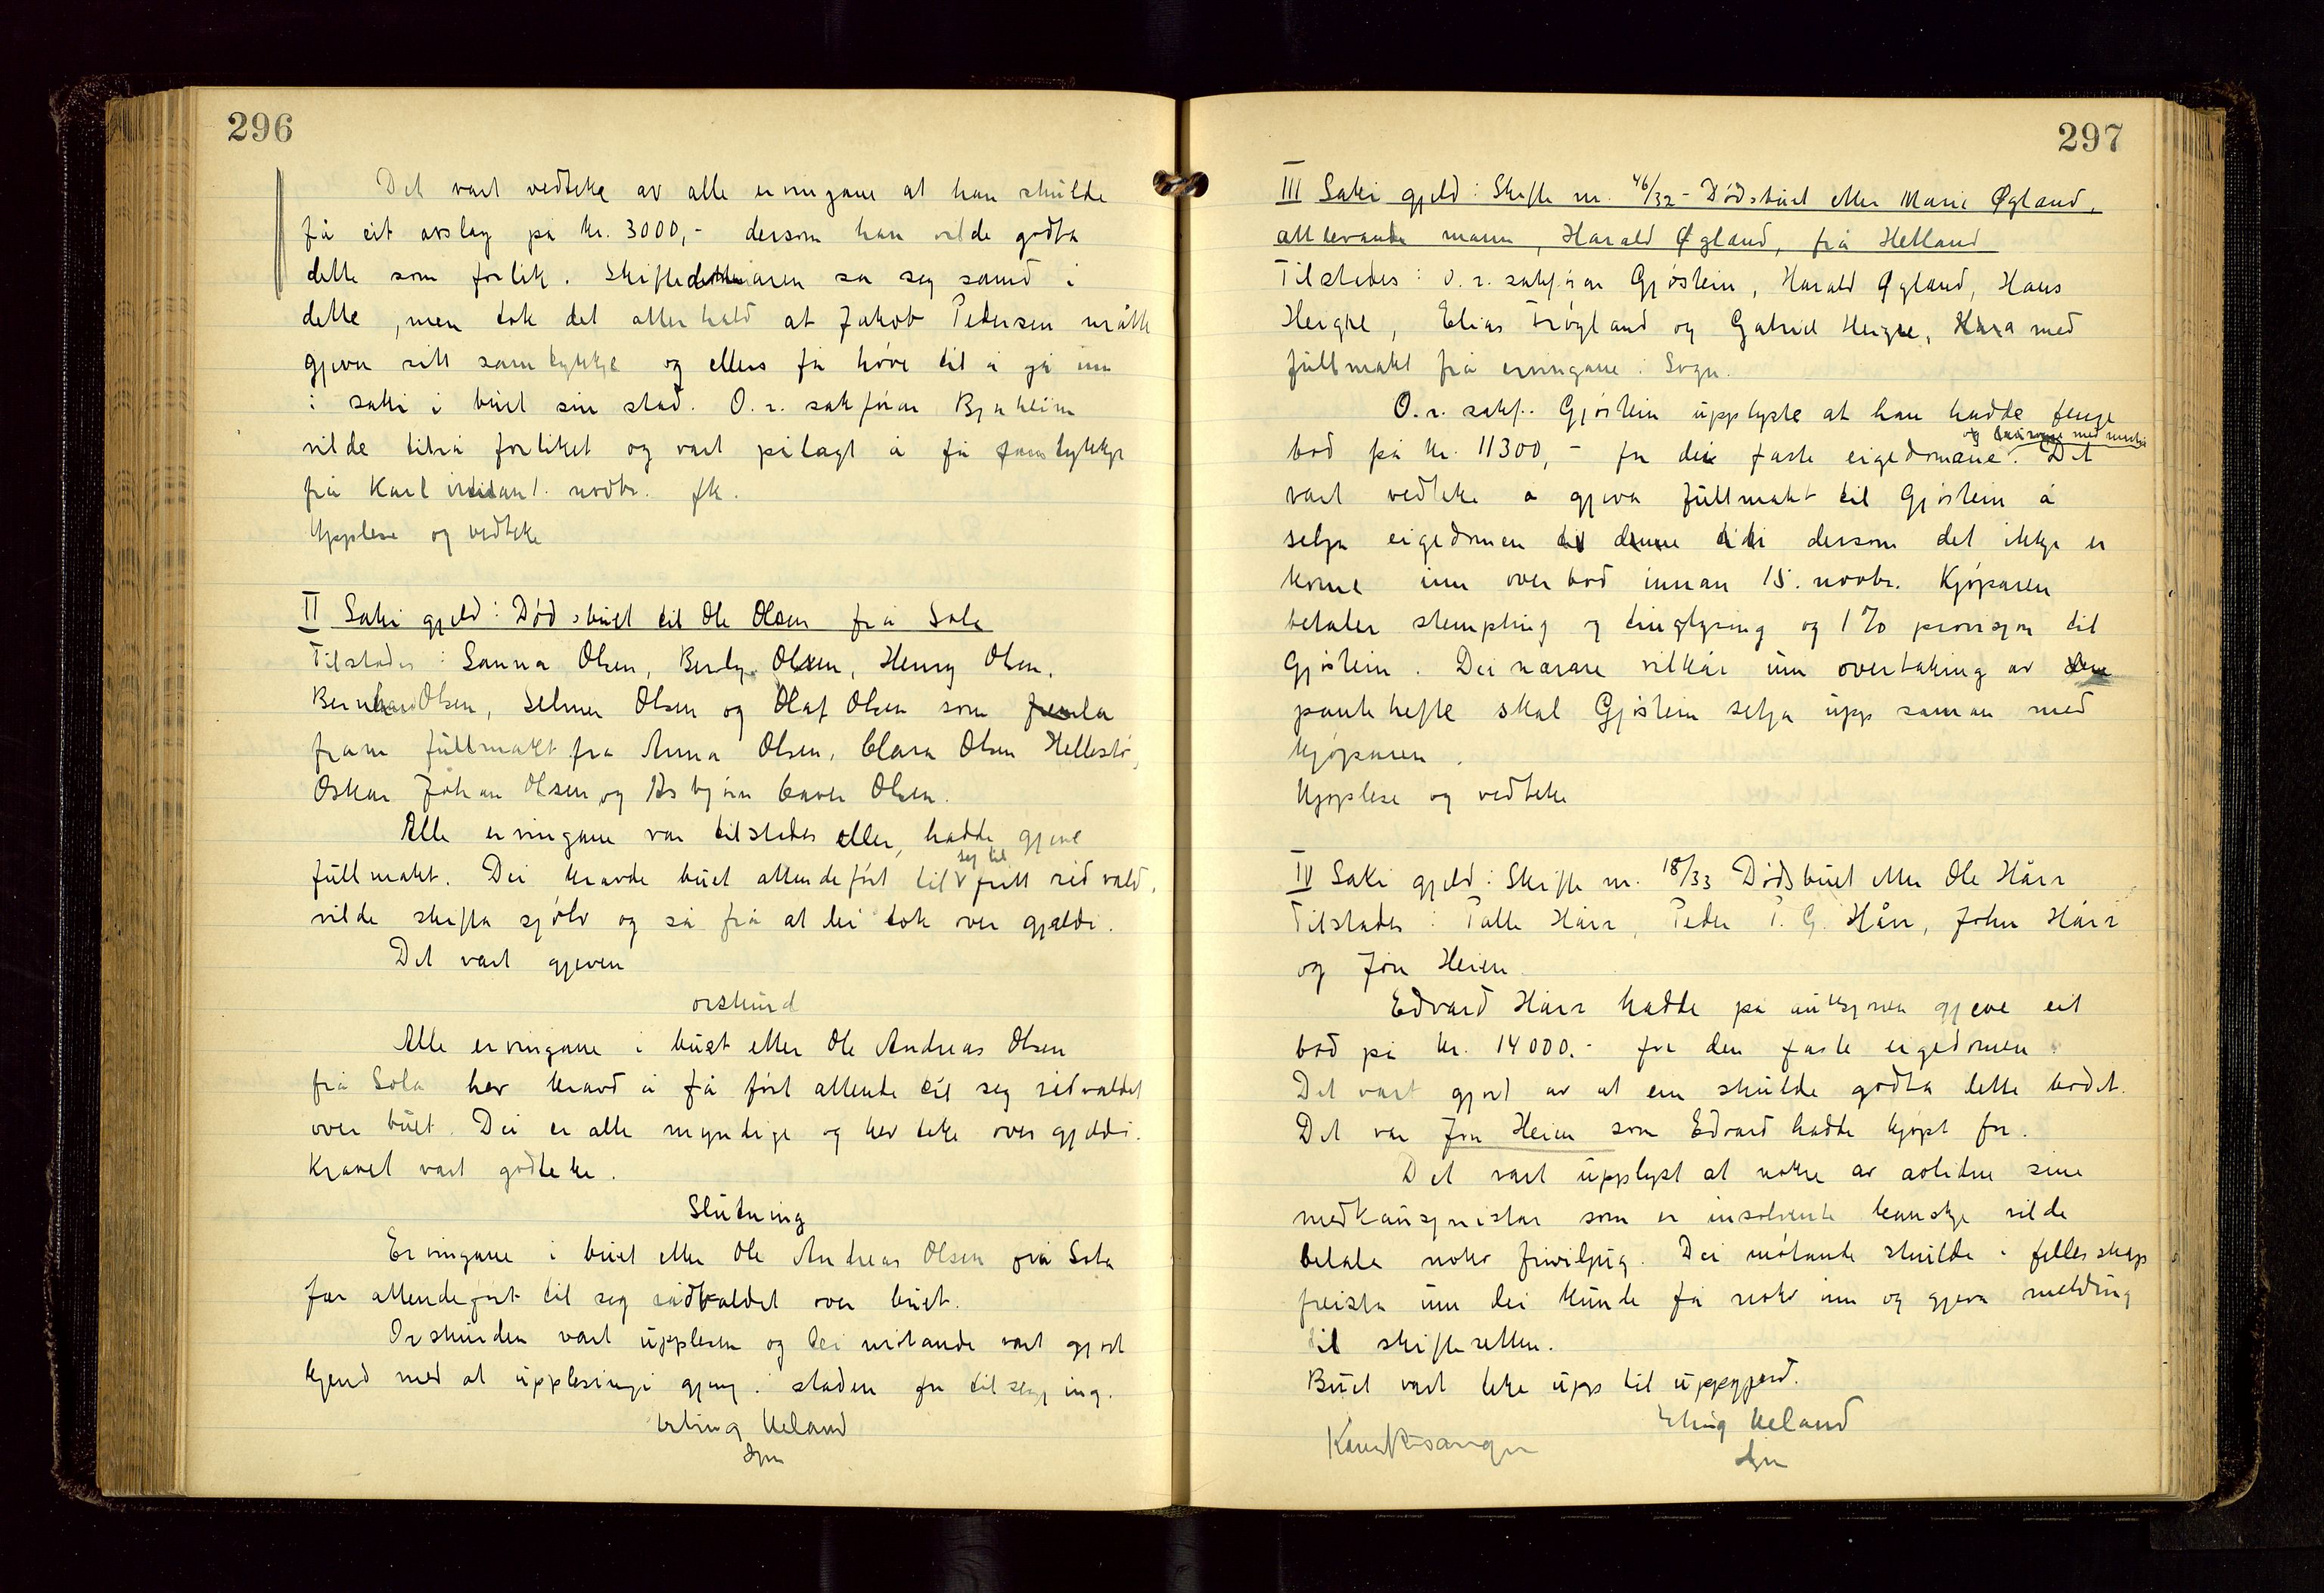 296
Det vart vedteke av alle ervingane at han skulde
få eit avslag på kr. 3000,- dersom han vilde godta
dette som forlik. Skiftedomaren sa seg samd i
dette, men tok det atterhald at Jakob Pedersen måtte
gjeva sitt samtykkje og ellers få høve til å gå inn
i saki i buet sin stad. O. r. sakførar Bjaheim
vilde tilrå forliket og vart pålagt å få samtykkje
frå Karl innan 1. novbr. fk.
Upplese og vedteke
II Saki gjeld: Dødsbuet til Ole Olsen frå Sola
Tilstades: Sanna Olsen, Berly Olsen, Henry Olsen,
Bernhard Olsen, Selmer Olsen og Olaf Olsen som la
fram fullmakt frå Anna Olsen, Clara Olsen Hellestø,
Oskar Johan Olsen og Asbjørn Olsen.
Alle ervingane var tilstades eller hadde gjeve
fullmakt. Dei kravde buet attendeført til seg til fritt rådvald,
vilde skifta sjølv og sa frå at dei tok over gjeldi.
Det vart gjeven
orskurd
Alle ervingane i buet etter Ole Andreas Olsen
frå Sola hev kravd å få ført attende til seg rådvaldet
over buet. Dei er alle myndige og hev teke over gjeldi.
Kravet vart godteke.
Slutning
Ervingane i buet etter Ole Andreas Olsen frå Sola
får attendeført til seg rådvaldet over buet.
Orskurden vart upplesen og dei møtande vart gjort
kjend med at upplesingi gjeng i staden for tilseging.
Erling Ueland
297
III Saki gjeld: Skifte nr. 46/32 - Dødsbuet etter Marie Øgland,
attlevande mann, Harald Øgland, frå Hetland
Tilstades: O. r. sakførar Gjøstein, Harald Øgland, Hans
Heigre, Elias Frøyland og Gabriel Heigre, med
fullmakt frå ervingane: Sogn.
O. r. sakf. Gjøstein upplyste at han hadde fenge
bod på kr. 11300,- for dei faste eigedomane. Det
vart vedteke å gjeva fullmakt til Gjøstein å
selja eigedomen dersom det ikkje er
kome inn overbod innan 15. novbr. Kjøparen
betaler stempling og tinglysing og 1 % provisjon til
Gjøstein. Dei nærare vilkår um overtaking av
panthefte skal Gjøstein setja upp saman med
kjøparen.
Upplese og vedteke
IV Saki gjeld: Skifte nr. 18/33 Dødsbuet etter Ole Hårr
Tilstades: Talle Hårr, Peder T. G. Hårr, John Hårr
og Jon Heien
Edvard Hårr hadde på auksjonen gjeve eit
bod på kr. 14000,- for den faste eigedomen.
Det vart gjort av at ein skulde godta dette bodet.
Det var Jon Heien som Edvard hadde kjøpt for.
Det vart upplyst at nokre av avlidne sine
medkausjonistar som er insolvente kanskje vilde
betala noko friviljug. Dei møtande skulde i fellesskap
freista um dei kunde få noko inn og gjeva melding
til skifteretten.
Buet vart teke upp til uppgjerd.
Erling Ueland